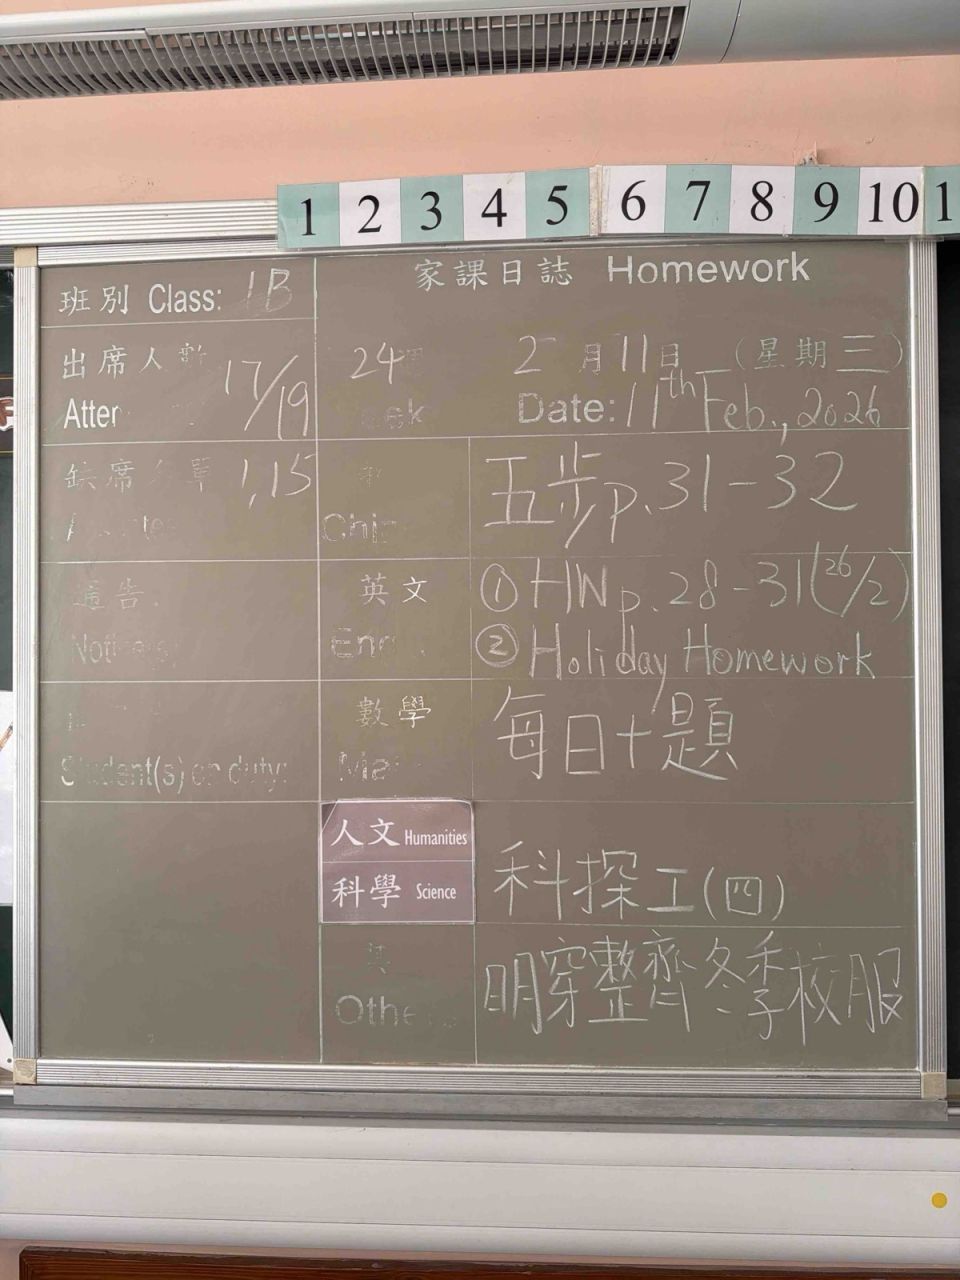 1 2 3 4 5 6 7 8 9 10 1
班別 Class: 1B
家課日誌 Homework
出席人數 17/19
Atten
24週
eek
2月11日 (星期三)
Date: 11th Feb., 2026
缺席名單 1,15
中
Chin
五步 p.31-32
通告:
Notices
英文
Eng
① HW p.28-31(26/2)
② Holiday Homework
數學
Ma
每日十題
Student(s) on duty:
人文 Humanities
科學 Science
科探工(四)
其
Others
明穿整齊冬季校服